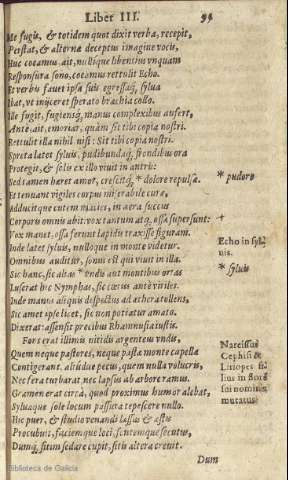 Liber III. 99
Me fugis, & totidem quot dixit verba, recepit,
Perstat, & alternæ deceptus imagine vocis,
Huc coëamus ait, nullique libentius vnquam
Responsura sono, coëamus rettulit Echo.
Et verbis fauet ipsa suis egressaq́; sylua
Ibat, vt iniiceret sperato brachia collo.
Ille fugit, fugiensq́; manus complexibus aufert,
Ante, ait, emoriar, quàm sit tibi copia nostri.
Rettulit illa nihil nisi: Sit tibi copia nostri.
Spreta latet syluis, pudibundaq́; frondibus ora
Protegit, & solis ex illo viuit in antris:
Sed tamen hæret amor, crescitq́; * dolore repulsæ. * pudore
Et tenuant vigiles corpus miserabile curæ,
Adducitque cutem macies, in aera succus
Corporis omnis abit: vox tantum atq. ossa supersunt: +
Vox manet, ossa ferunt lapidis traxisse figuram.
Inde latet syluis, nulloque in monte videtur. Echo in syl-
Omnibus auditur, sonus est qui viuit in illa. uis.
Sic hanc, sic alias * vndis aut montibus ortas * syluis
Luserat hic Nymphas, sic cœtus antè viriles.
Inde manus aliquis despectus ad æthera tollens,
Sic amet ipse licet, sic non potiatur amato.
Dixerat: assensit precibus Rhamnusia iustis.
Fons erat illimis nitidis argenteus vndis, Narcissus
Quem neque pastores, neque pastæ monte capellæ Cephisi &
Contigerant, aliúdue pecus, quem nulla volucris, Liriopes fi
Nec fera turbarat, nec lapsus ab arbore ramus. lius in florē
Gramen erat circà, quod proximus humor alebat, sui nominis
Syluaque sole locum passura tepescere nullo. mutatus
Hic puer, & studio venandi lassus & æstu
Procubuit, faciemque loci, fontemque secutus,
Dumq́; sitim sedare cupit, sitis altera creuit.
Dum
Biblioteca de Galicia